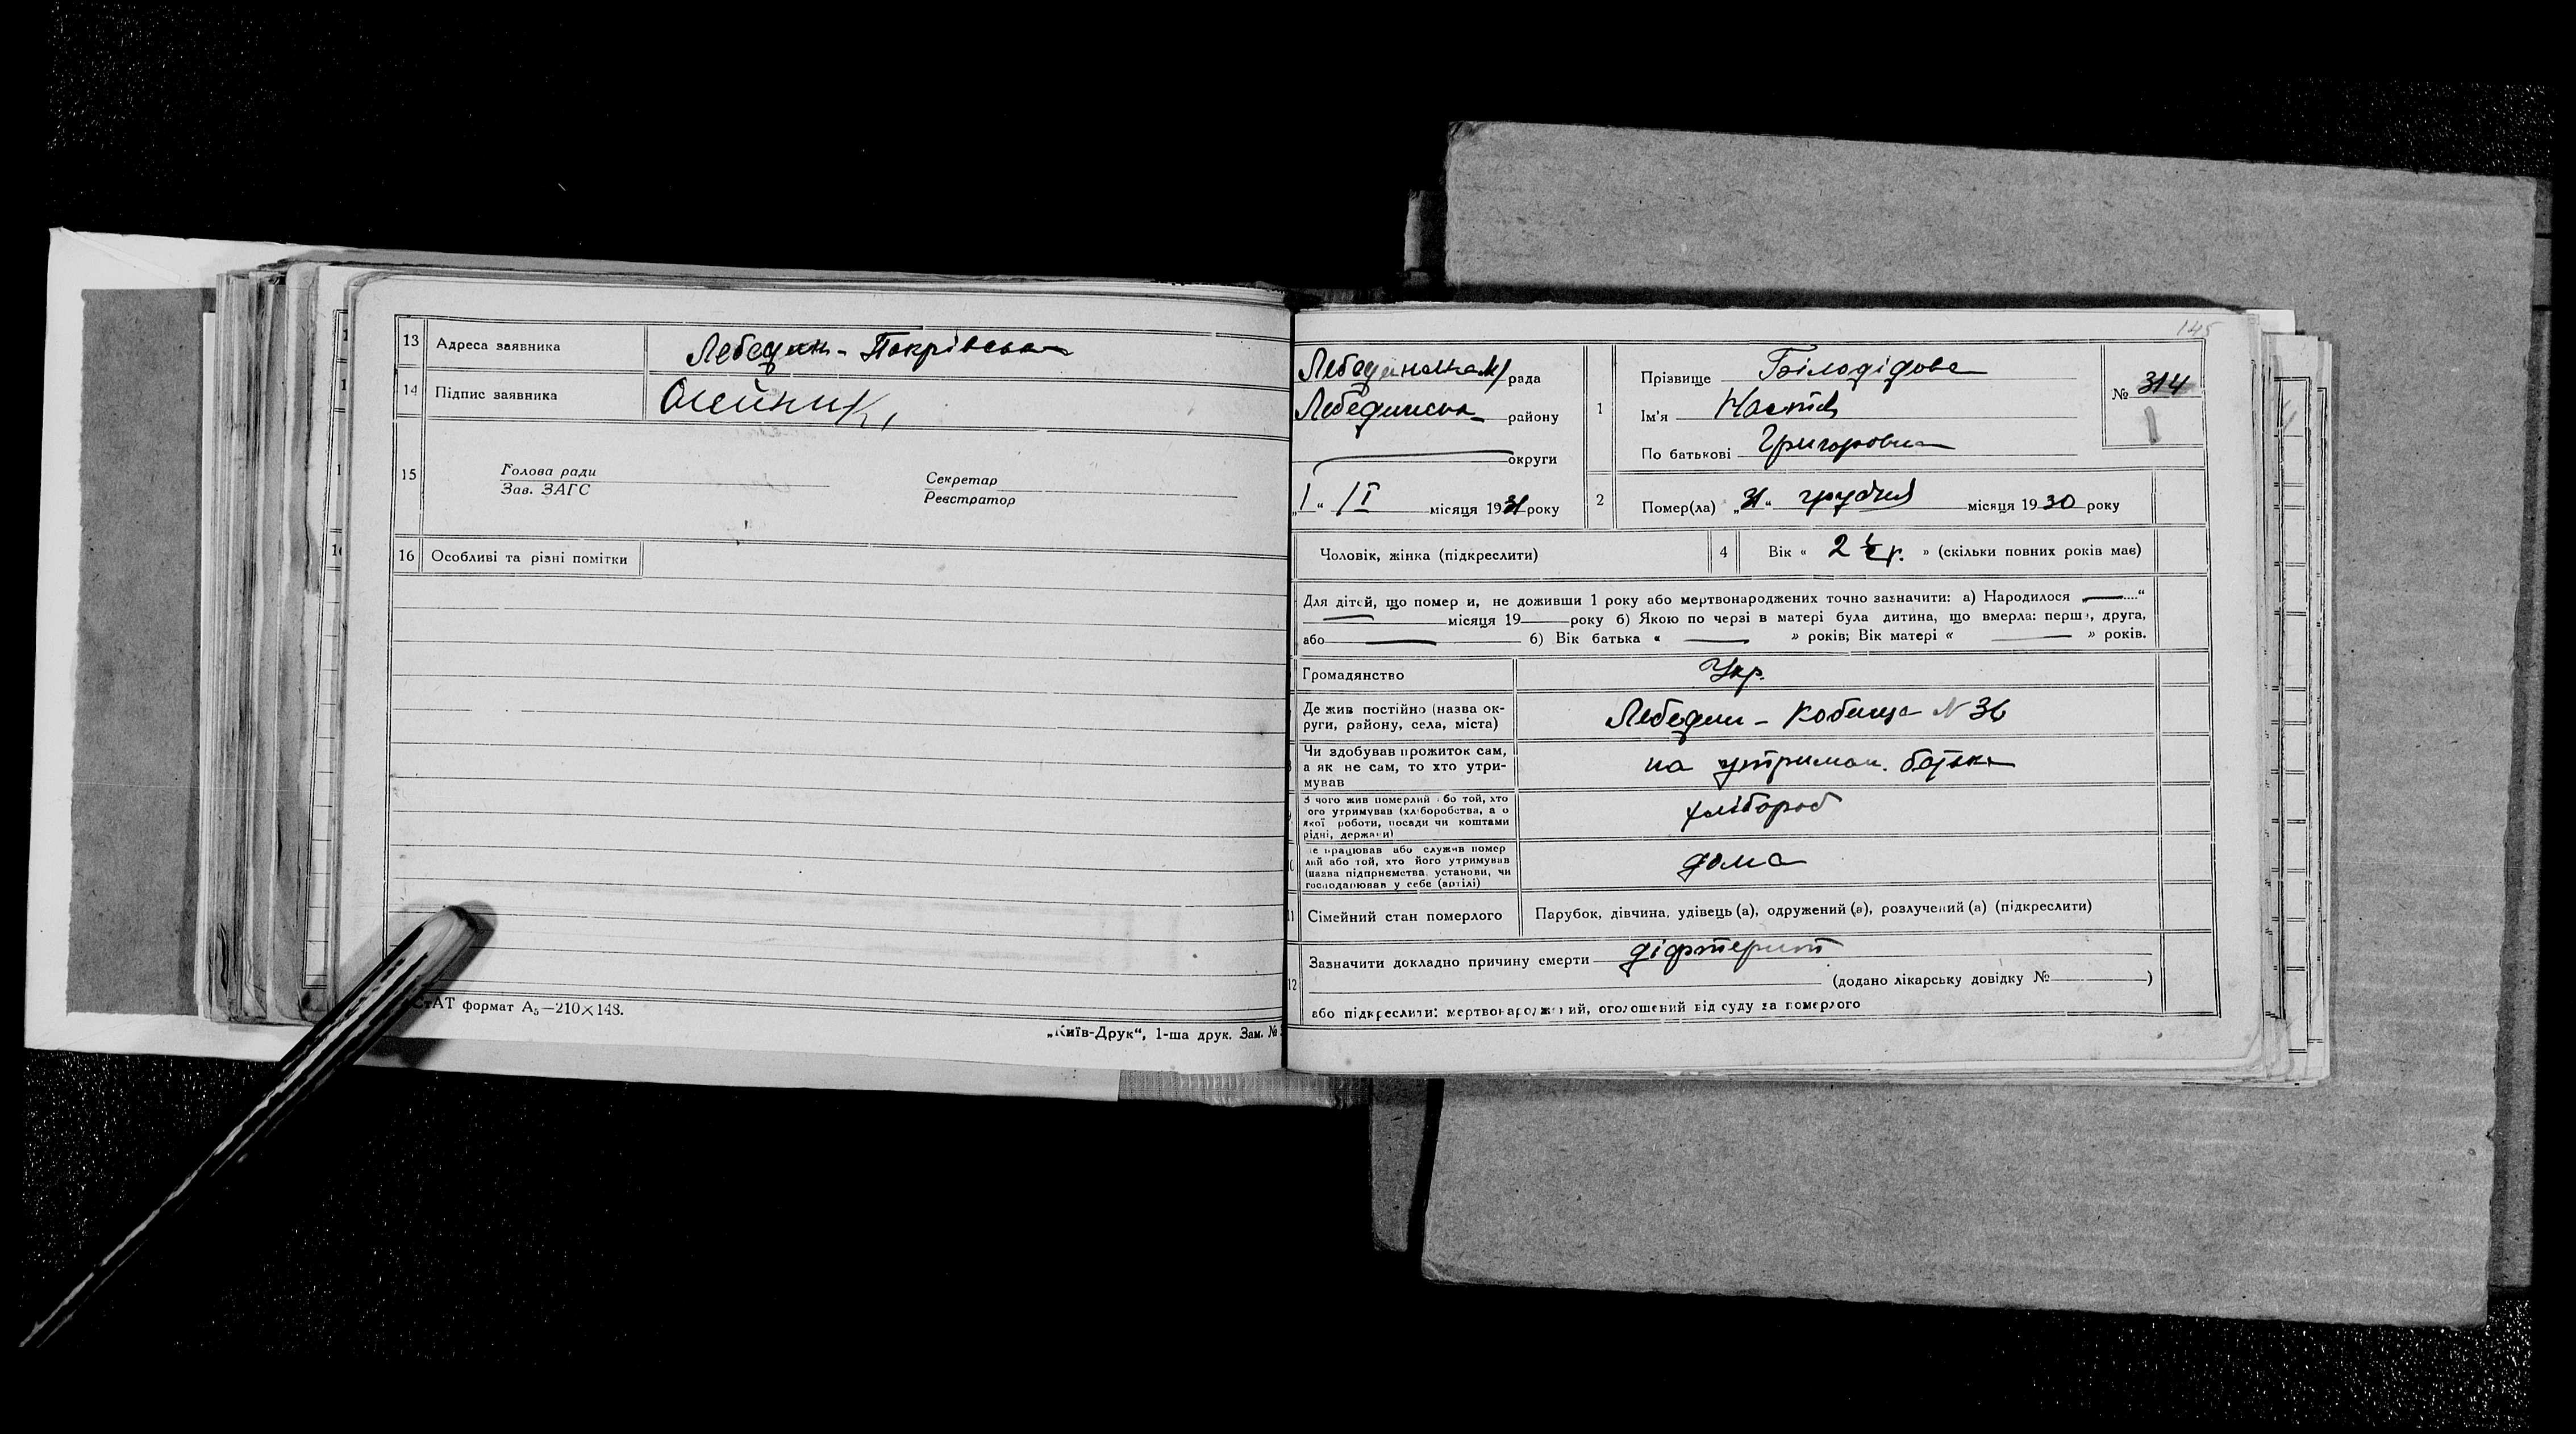 13 Адреса заявника Лебедин - Покрівська
14 Підпис заявника Олейник,
15 Голова ради
Зав. ЗАГС
Секретар
Реєстратор
16 Особливі та різні помітки
СтАТ формат А5—210×148.
„Київ-Друк“, 1-ша друк. Зам. №
145
Лебединська М/рада
Лебединськ району
округи
„1“ / I місяця 1931 року
1 Прізвище Білодідова
Ім'я Настя
По батькові Григоровна
№ 314
1
2 Помер(ла) „31“ грудня місяця 1930 року
Чоловік, жінка (підкреслити)
4 Вік « 2 ½ р. » (скільки повних років має)
Для дітей, що помер и, не доживши 1 року або мертвонароджених точно зазначити: а) Народилося “
місяця 19 року б) Якою по черзі в матері була дитина, що вмерла: перша, друга,
або б) Вік батька « » років; Вік матері « » років.
Громадянство Укр.
Де жив постійно (назва ок-
руги, району, села, міста) Лебедин - Кобища N 36
Чи здобував прожиток сам,
а як не сам, то хто утри-
мував на утриман. батька
З чого жив померлий або той, хто
ого утримував (хліборобства, а о
якої роботи, посади чи коштами
рідні, держави) хлібороб
е працював або служив помер
лий або той, хто його утримував
(назва підприємства, установи, чи
господарював у себе (артілі) дома
11 Сімейний стан померлого Парубок, дівчина, удівець (а), одружений (а), розлучений (а) (підкреслити)
12 Зазначити докладно причину смерти дифтерит
(додано лікарську довідку № )
або підкреслити: мертвонароджений, оголошений від суду за померлого